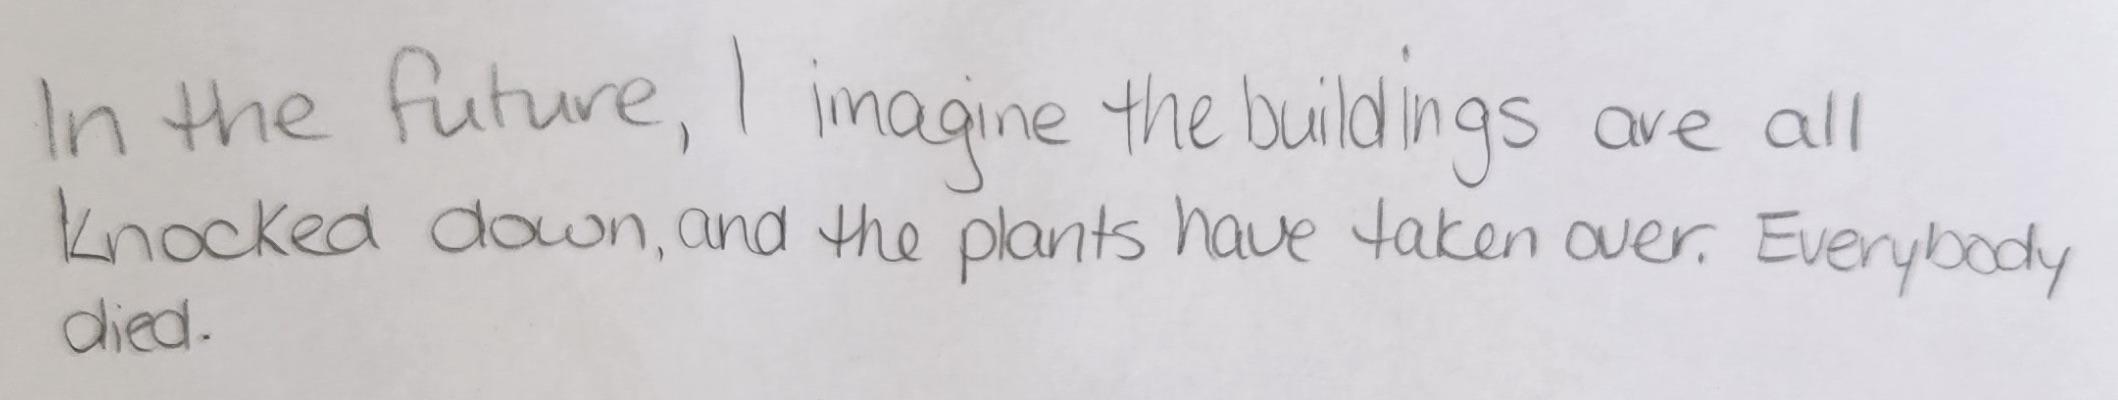 In the future, I imagine the buildings are all
knocked down, and the plants have taken over. Everybody
died.